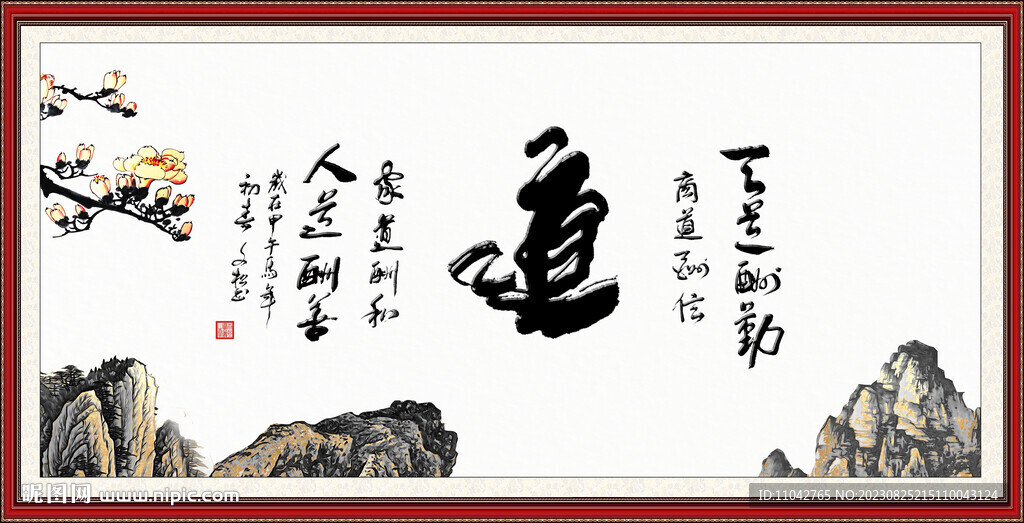 天道酬勤
商道酬信
道
家道酬和
人道酬善
歲在甲午馬年
初春文松書
昵图网 www.nipic.com
ID:11042765 NO:20230825215110043124